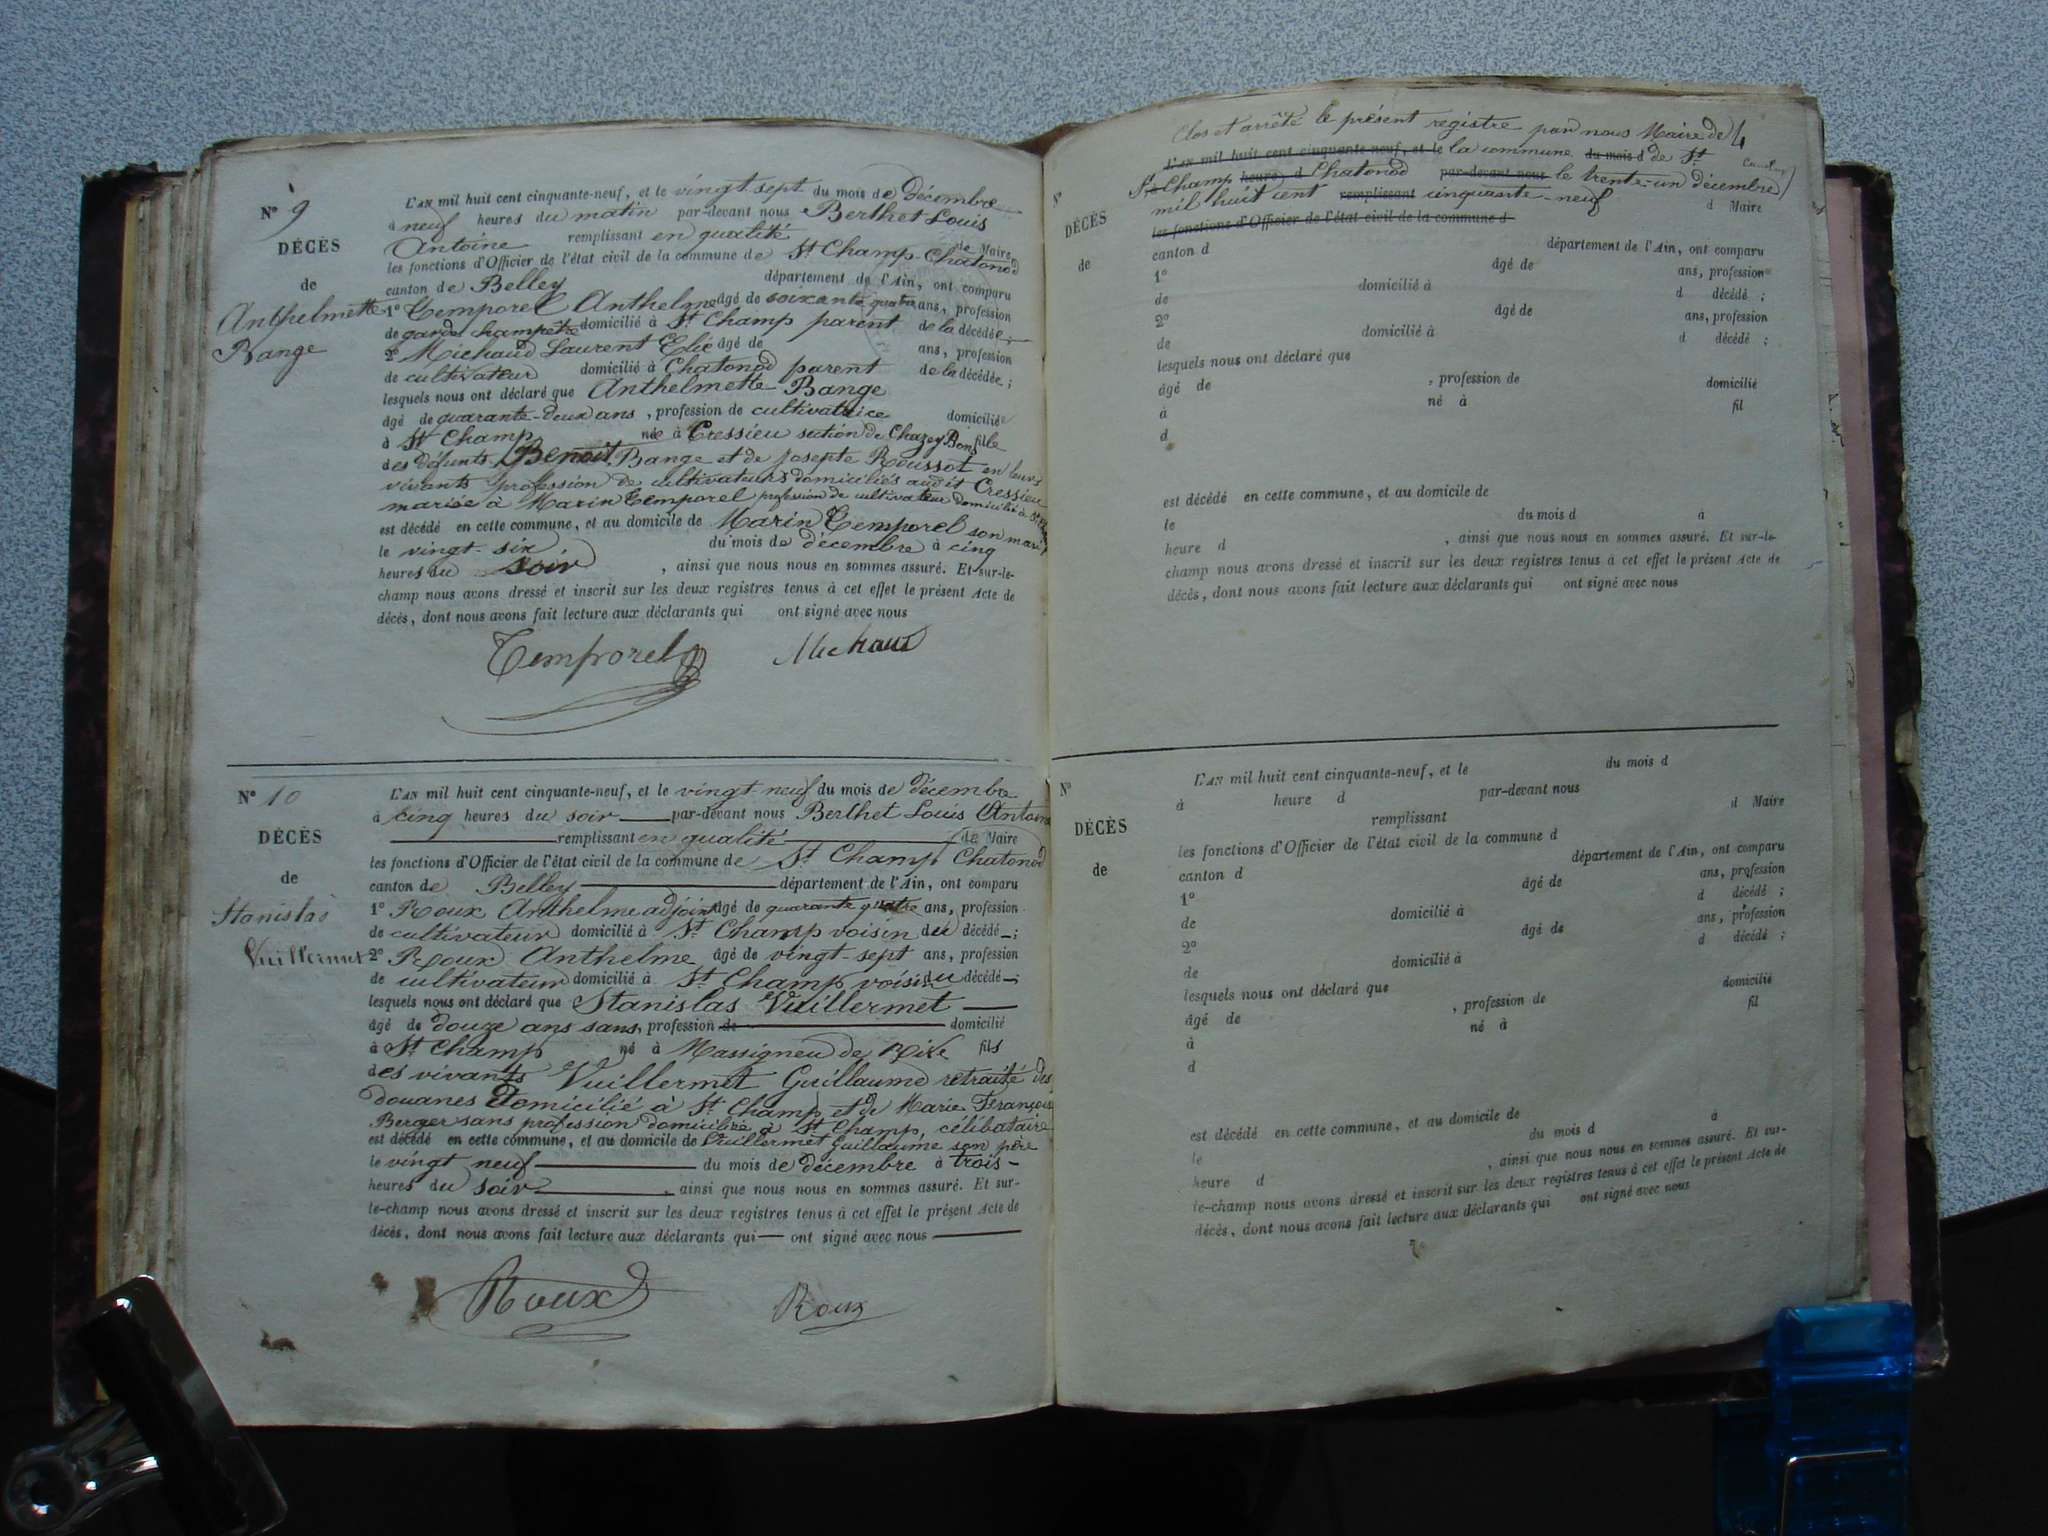 N° 9
DÉCÈS
de
Anthelmette
Bange
L'AN mil huit cent cinquante-neuf, et le vingt-sept du mois de Décembre
à neuf heures du matin par-devant nous Berthet Louis
Antoine remplissant en qualité de Maire
les fonctions d'Officier de l'état civil de la commune de St Champ-Chatonod
canton de Belley département de l'Ain, ont comparu
1° Temporel Anthelme âgé de soixante quatre ans, profession
de garde champetre domicilié à St Champ parent de la décédée;
2° Michaud Laurent Elie âgé de ans, profession
de cultivateur domicilié à Chatonod parent de la décédée;
lesquels nous ont déclaré que Anthelmette Bange
âgé de quarante-deux ans, profession de cultivatrice domicilié
à St Champ née à Cressieu section de Chazey Bons fille
des défunts Benoît Bange et de Josepte Roussot en leurs
vivants profession de cultivateurs domiciliés audit Cressieu
mariée à Marin Temporel profession de cultivateur domicilié à St
est décédé en cette commune, et au domicile de Marin Temporel son mari
le vingt-six du mois de décembre à cinq
heures du soir, ainsi que nous nous en sommes assuré. Et sur-le-
champ nous avons dressé et inscrit sur les deux registres tenus à cet effet le présent Acte de
décès, dont nous avons fait lecture aux déclarants qui ont signé avec nous
Temporel Michaud
N° 10
DÉCÈS
de
Stanislas
Vuillermet
L'AN mil huit cent cinquante-neuf, et le vingt neuf du mois de décembre
à cinq heures du soir par-devant nous Berthet Louis Antoine
remplissant en qualité de Maire
les fonctions d'Officier de l'état civil de la commune de St Champ Chatonod
canton de Belley département de l'Ain, ont comparu
1° Roux Anthelme adjoint âgé de quarante quatre ans, profession
de cultivateur domicilié à St Champ voisin du décédé;
2° Roux Anthelme âgé de vingt-sept ans, profession
de cultivateur domicilié à St Champ voisin du décédé;
lesquels nous ont déclaré que Stanislas Vuillermet
âgé de douze ans sans, profession de domicilié
à St Champ né à Massigneu de Rive fils
des vivants Vuillermet Guillaume retraité des
douanes domicilié à St Champ et de Marie Françoise
Berger sans profession domiciliée à St Champ, célibataire
est décédé en cette commune, et au domicile de Vuillermet Guillaume son père
le vingt neuf du mois de décembre à trois
heures du soir, ainsi que nous nous en sommes assuré. Et sur-
le-champ nous avons dressé et inscrit sur les deux registres tenus à cet effet le présent Acte de
décès, dont nous avons fait lecture aux déclarants qui ont signé avec nous
Roux Roux
Clos et arrêté le présent registre par nous Maire de
L'AN mil huit cent cinquante-neuf, et le la commune du mois d de St
St Champ heure d Chatonod par-devant nous le trente-un décembre
mil huit cent remplissant cinquante-neuf d Maire
les fonctions d'Officier de l'état civil de la commune d
N°
DÉCÈS
de
canton d département de l'Ain, ont comparu
1° âgé de ans, profession
de domicilié à d décédé;
2° âgé de ans, profession
de domicilié à d décédé;
lesquels nous ont déclaré que
âgé de, profession de domicilié
à né à fil
d
est décédé en cette commune, et au domicile de
le du mois d à
heure d, ainsi que nous nous en sommes assuré. Et sur-le-
champ nous avons dressé et inscrit sur les deux registres tenus à cet effet le présent Acte de
décès, dont nous avons fait lecture aux déclarants qui ont signé avec nous
N°
DÉCÈS
de
L'AN mil huit cent cinquante-neuf, et le du mois d
à heure d par-devant nous
remplissant d Maire
les fonctions d'Officier de l'état civil de la commune d
canton d département de l'Ain, ont comparu
1° âgé de ans, profession
de domicilié à d décédé;
2° âgé de ans, profession
de domicilié à d décédé;
lesquels nous ont déclaré que
âgé de, profession de domicilié
à né à fil
d
est décédé en cette commune, et au domicile de
le du mois d à
heure d, ainsi que nous nous en sommes assuré. Et sur-
le-champ nous avons dressé et inscrit sur les deux registres tenus à cet effet le présent Acte de
décès, dont nous avons fait lecture aux déclarants qui ont signé avec nous